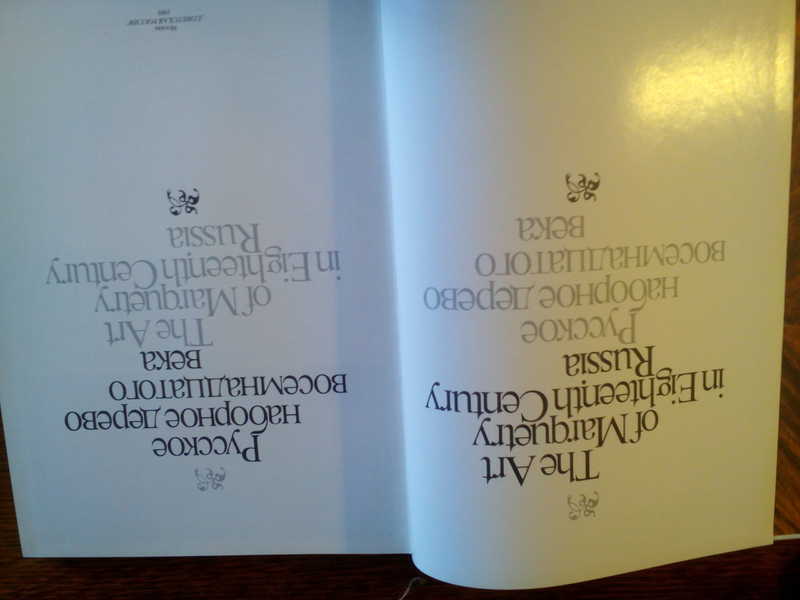 The Art
of Marquetry
in Eighteenth Century
Russia
Русское
наборное дерево
восемнадцатого
века
Русское
наборное дерево
восемнадцатого
века
The Art
of Marquetry
in Eighteenth Century
Russia
Москва
"СОВЕТСКАЯ РОССИЯ"